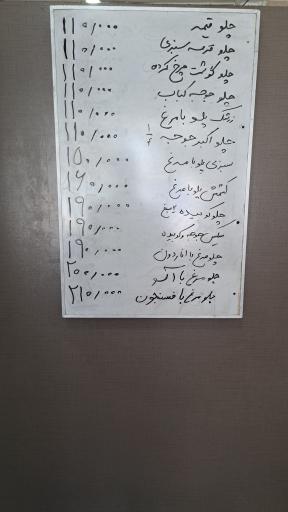 چلو قیمه ۱۱۰/۰۰۰
چلو قرمه سبزی ۱۱۰/۰۰۰
چلو گوشت چرخ کرده ۱۱۰/۰۰۰
چلو جوجه کباب ۱۱۰/۰۰۰
زرشک پلو با مرغ ۱۱۰/۰۰۰
چلو اکبر جوجه ۱/۴ ۱۱۰/۰۰۰
سبزی پلو با مرغ ۱۵۰/۰۰۰
کشمش پلو با مرغ ۱۶۰/۰۰۰
چلو کوبیده ۱۹۰/۰۰۰
جوجه و کوبیده ۱۹۰/۰۰۰
چلو مرغ با انار دون ۱۹۰/۰۰۰
چلو مرغ با آلو ۲۰۰/۰۰۰
چلو مرغ با فسنجون ۲۱۰/۰۰۰